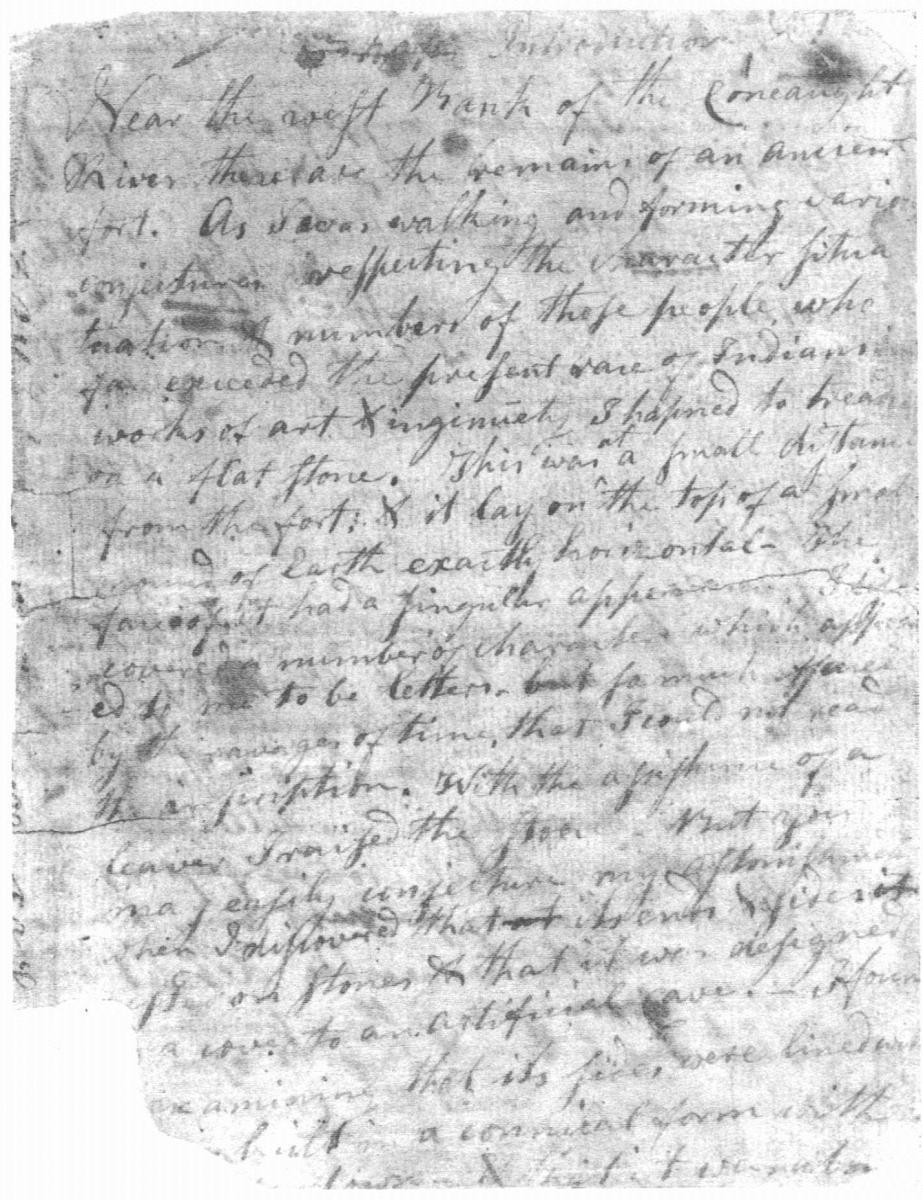 Introduction
Near the west Bank of the Coneaught
River there are the remains of an ancient
fort. As I was walking and forming vario
conjectures respecting the character situa
tuation & numbers of those people who
far exceeded the present race of Indians in
works of art & inginuety I hapned to tread
on a flat stone. This was at a small distance
from the fort: & it lay on the top of a smal
mound of Earth exactly horizontal - The
face of it had a singular appearance. I dis
covered a number of characters which appear
ed to me to be letters - but so much effaced
by the ravages of time, that I could not read
the inscription. With the assistance of a
leaver I raised the stone - But you
may easily conjecture my astonishment
when I discovered that its ends & sides
on stones & that it was designed
a cover to an artificial cave. - I foun
examining that its sides were lined with
built in a connical form with
down & that it was